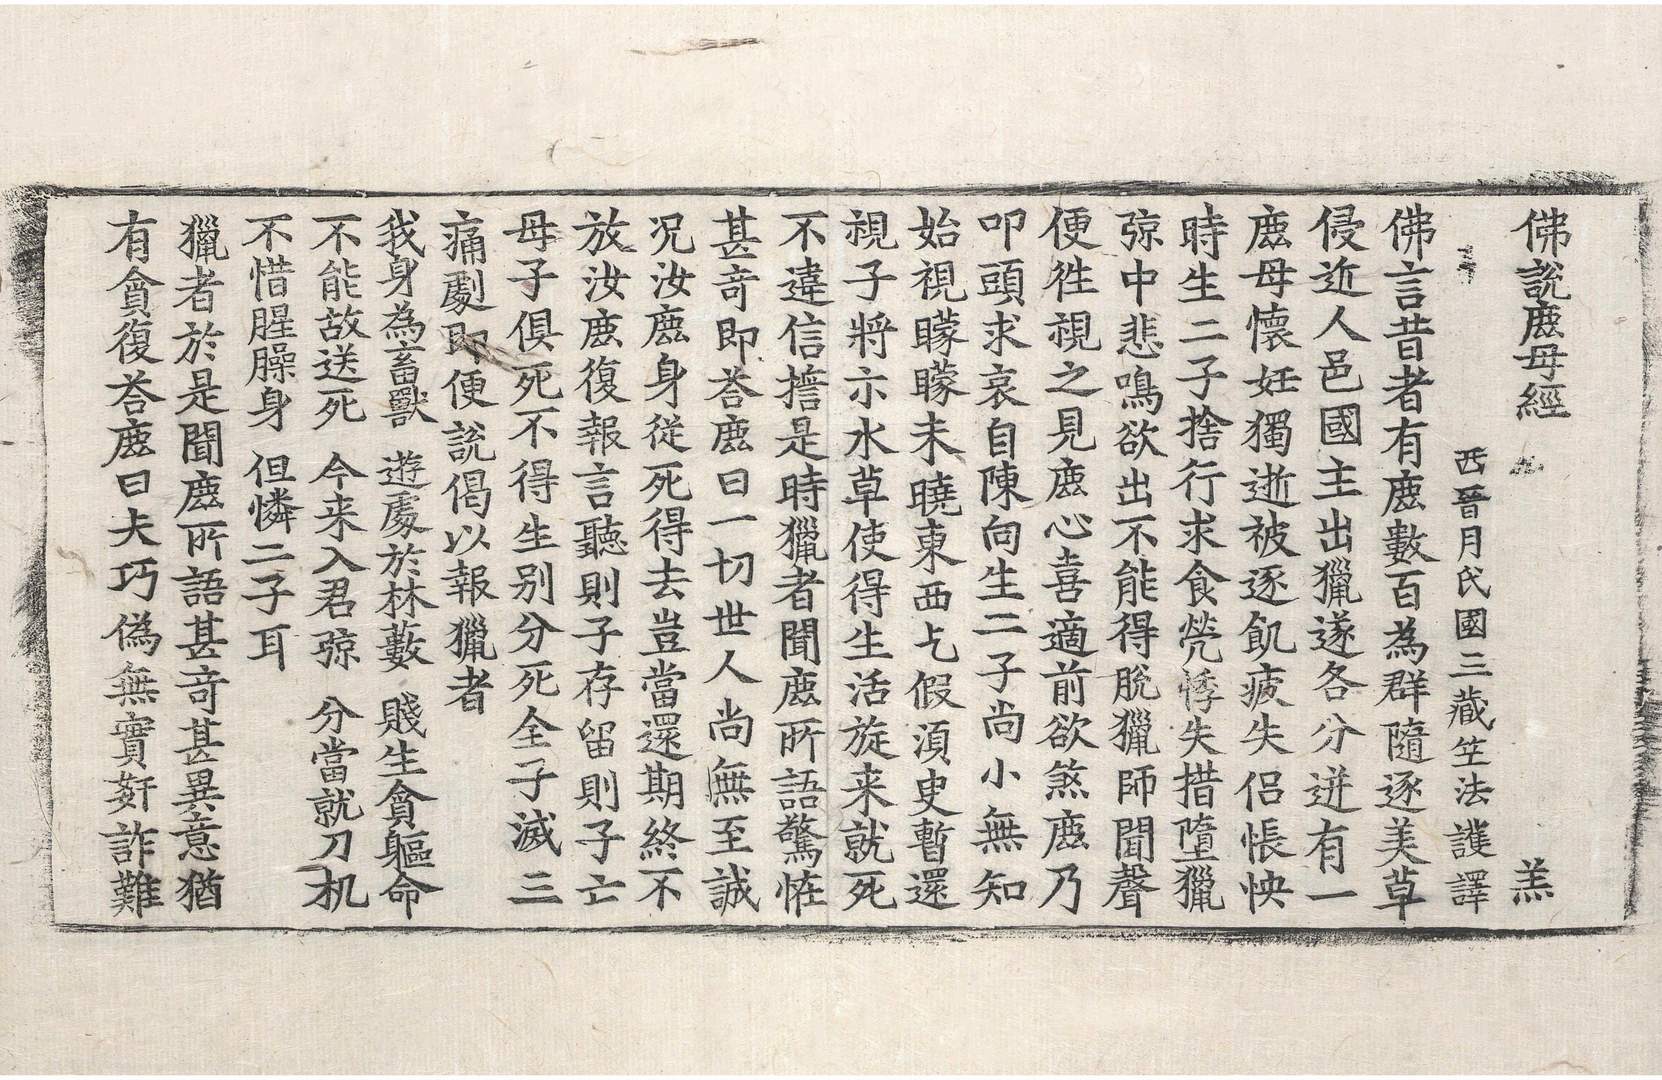 佛說鹿母經 羔
西晉月氏國三藏竺法護譯
佛言昔者有鹿數百為群隨逐美草
侵近人邑國主出獵遂各分迸有一
鹿母懷妊獨逝被逐飢疲失侶悵怏
時生二子捨行求食煢悸失措墮獵
弶中悲鳴欲出不能得脫獵師聞聲
便徃視之見鹿心喜適前欲煞鹿乃
叩頭求哀自陳向生二子尚小無知
始視矇矇未曉東西乞假須臾暫還
視子將示水草使得生活旋来就死
不違信誓是時獵者聞鹿所語驚恠
甚奇即荅鹿曰一切世人尚無至誠
况汝鹿身從死得去豈當還期終不
放汝鹿復報言聽則子存留則子亡
母子俱死不得生别分死全子滅三
痛劇即便說偈以報獵者
我身為畜獸 遊處於林藪 賤生貪軀命
不能故送死 今来入君弶 分當就刀机
不惜腥臊身 但憐二子耳
獵者於是聞鹿所語甚奇甚異意猶
有貪復荅鹿曰夫巧偽無實姧詐難